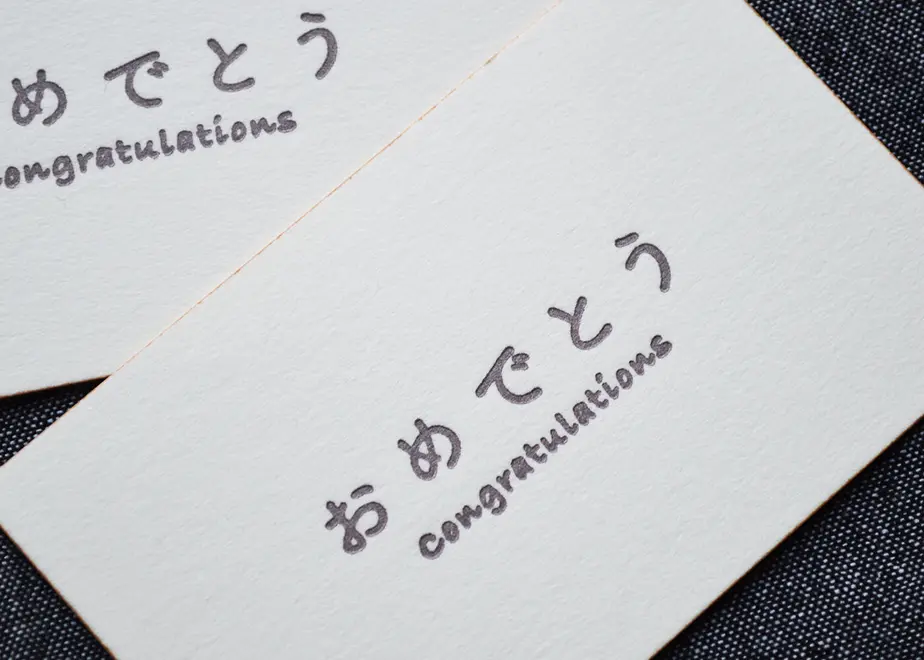 めでとう
congratulations
おめでとう
congratulations